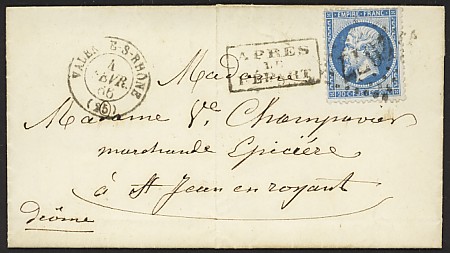 VALENCE-S-RHÔNE
4
FEVR.
66
(25)
APRES
LE
DEPART
EMPIRE FRANC.
20 C
Madame
Madame Ve Champavier
marchande Epicière
à St Jean en royant
drôme